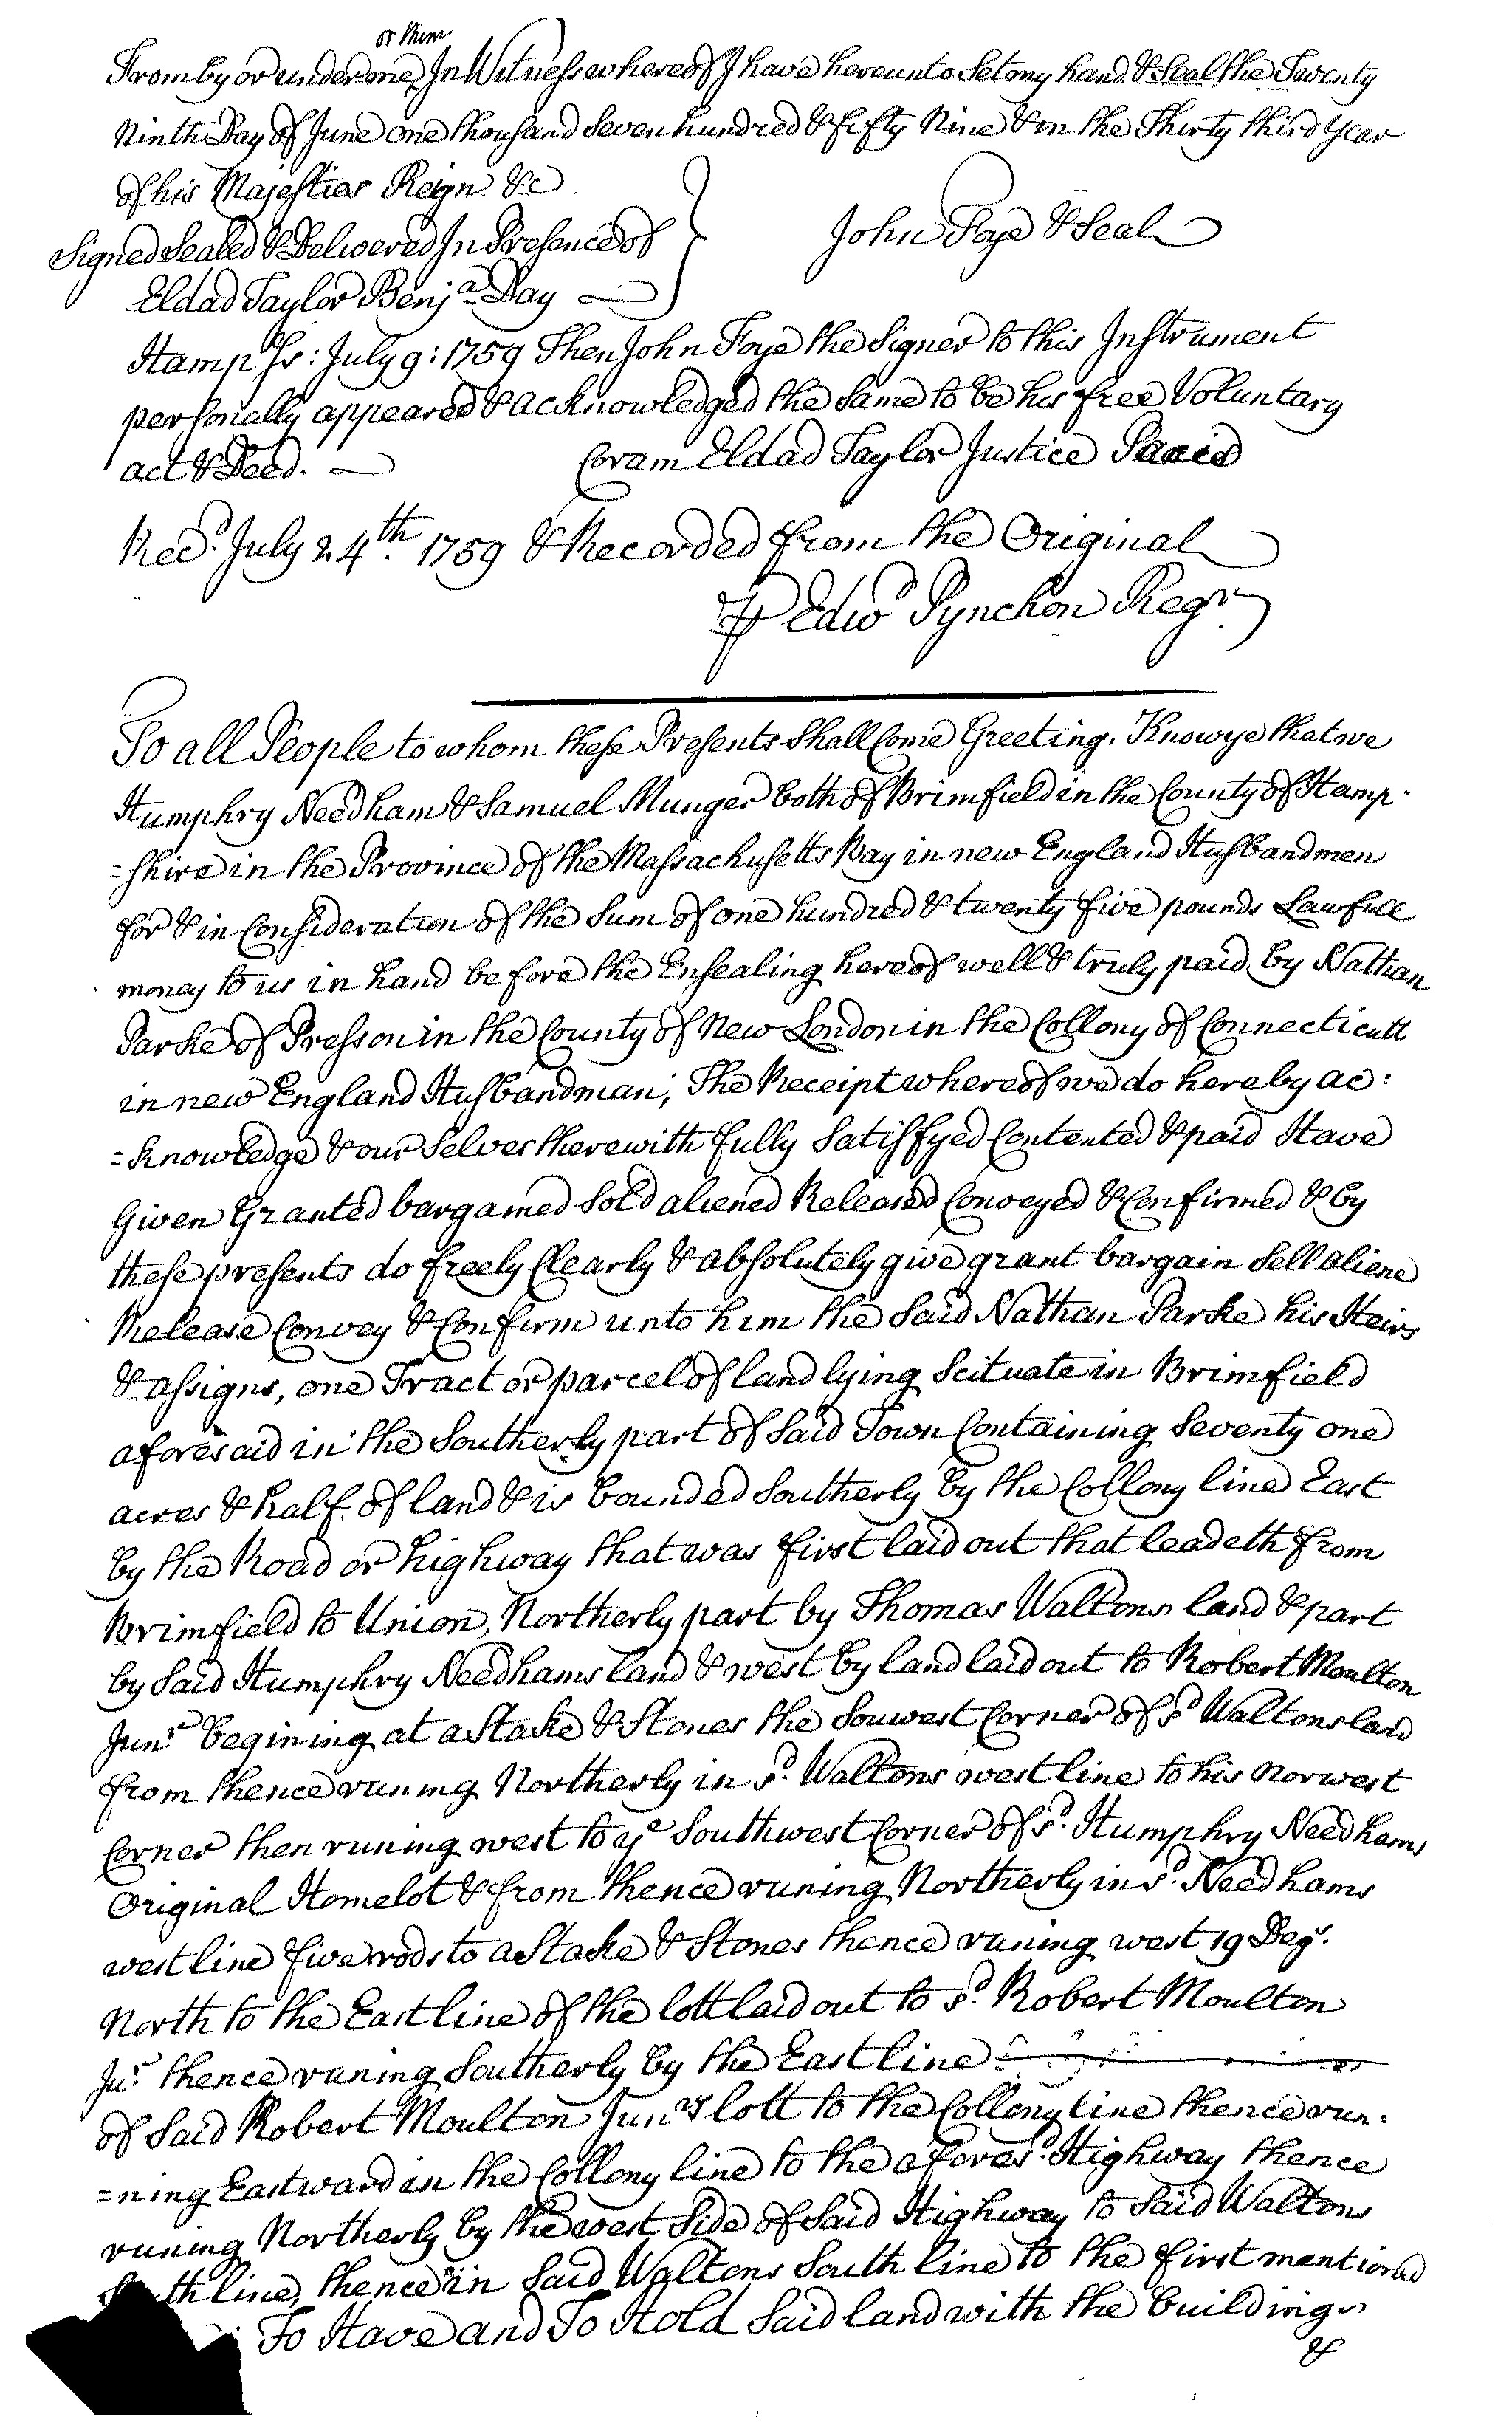 or them
From by or under me, In Witness whereof I have hereunto Set my hand & Seal the Twenty
Ninth Day of June one thousand Seven hundred & fifty Nine & in the Thirty third Year
of his Majesties Reign &c
Signed Sealed & Delivered In Presence of
John Foye & Seal
Eldad Taylor Benja Day
Hamp Sr: July 9: 1759 Then John Foye the Signer to this Instrument
personally appeared & acknowledged the Same to be his free Voluntary
act & Deed.
Coram Eldad Taylor Justice Pacis
Recd. July 24th. 1759 & Recorded from the Original
Edwd Pynchon Regr.
To all People to whom these Presents Shall Come Greeting. Know ye that we
Humphry Needham & Samuel Munger both of Brimfield in the County of Hamp-
=shire in the Province of the Massachusetts Bay in new England Husbandmen
for & in Consideration of the Sum of one hundred & twenty five pounds Lawfull
money to us in hand before the Ensealing hereof well & truly paid by Nathan
Parke of Preston in the County of New London in the Collony of Connecticutt
in new England Husbandman; The Receipt whereof we do hereby ac:
=knowledge & our Selves therewith fully Satisfyed Contented & paid Have
Given Granted bargained Sold aliened Released Conveyed & Confirmed & by
these presents do freely Clearly & absolutely give grant bargain Sell aliene
Release Convey & Confirm unto him the Said Nathan Parke his Heirs
& assigns, one Tract or parcel of land lying Scituate in Brimfield
aforesaid in the Southerly part of Said Town Containing Seventy one
acres & half of land & is bounded Southerly by the Collony line East
by the Road or highway that was first laid out that leadeth from
Brimfield to Union, Northerly part by Thomas Waltons land & part
by Said Humphry Needhams land & west by land laid out to Robert Moulton
Junr. begining at a Stake & Stones the Souwest Corner of sd Waltons land
from thence runing Northerly in sd. Waltons west line to his norwest
Corner then runing west to ye Southwest Corner of sd. Humphry Needhams
Original Homelot & from thence runing Northerly in sd. Needhams
west line five rods to a Stake & Stones thence runing west 19 Degr.
North to the East line of the lott laid out to sd. Robert Moulton
Jur. thence runing Southerly by the East line
of Said Robert Moulton Junrs lott to the Collony line thence run:
=ning Eastward in the Collony line to the aforesd. Highway thence
runing Northerly by the west Side of Said Highway to Said Waltons
South line, thence in Said Waltons South line to the first mentioned
To Have and To Hold Said land with the buildings
&